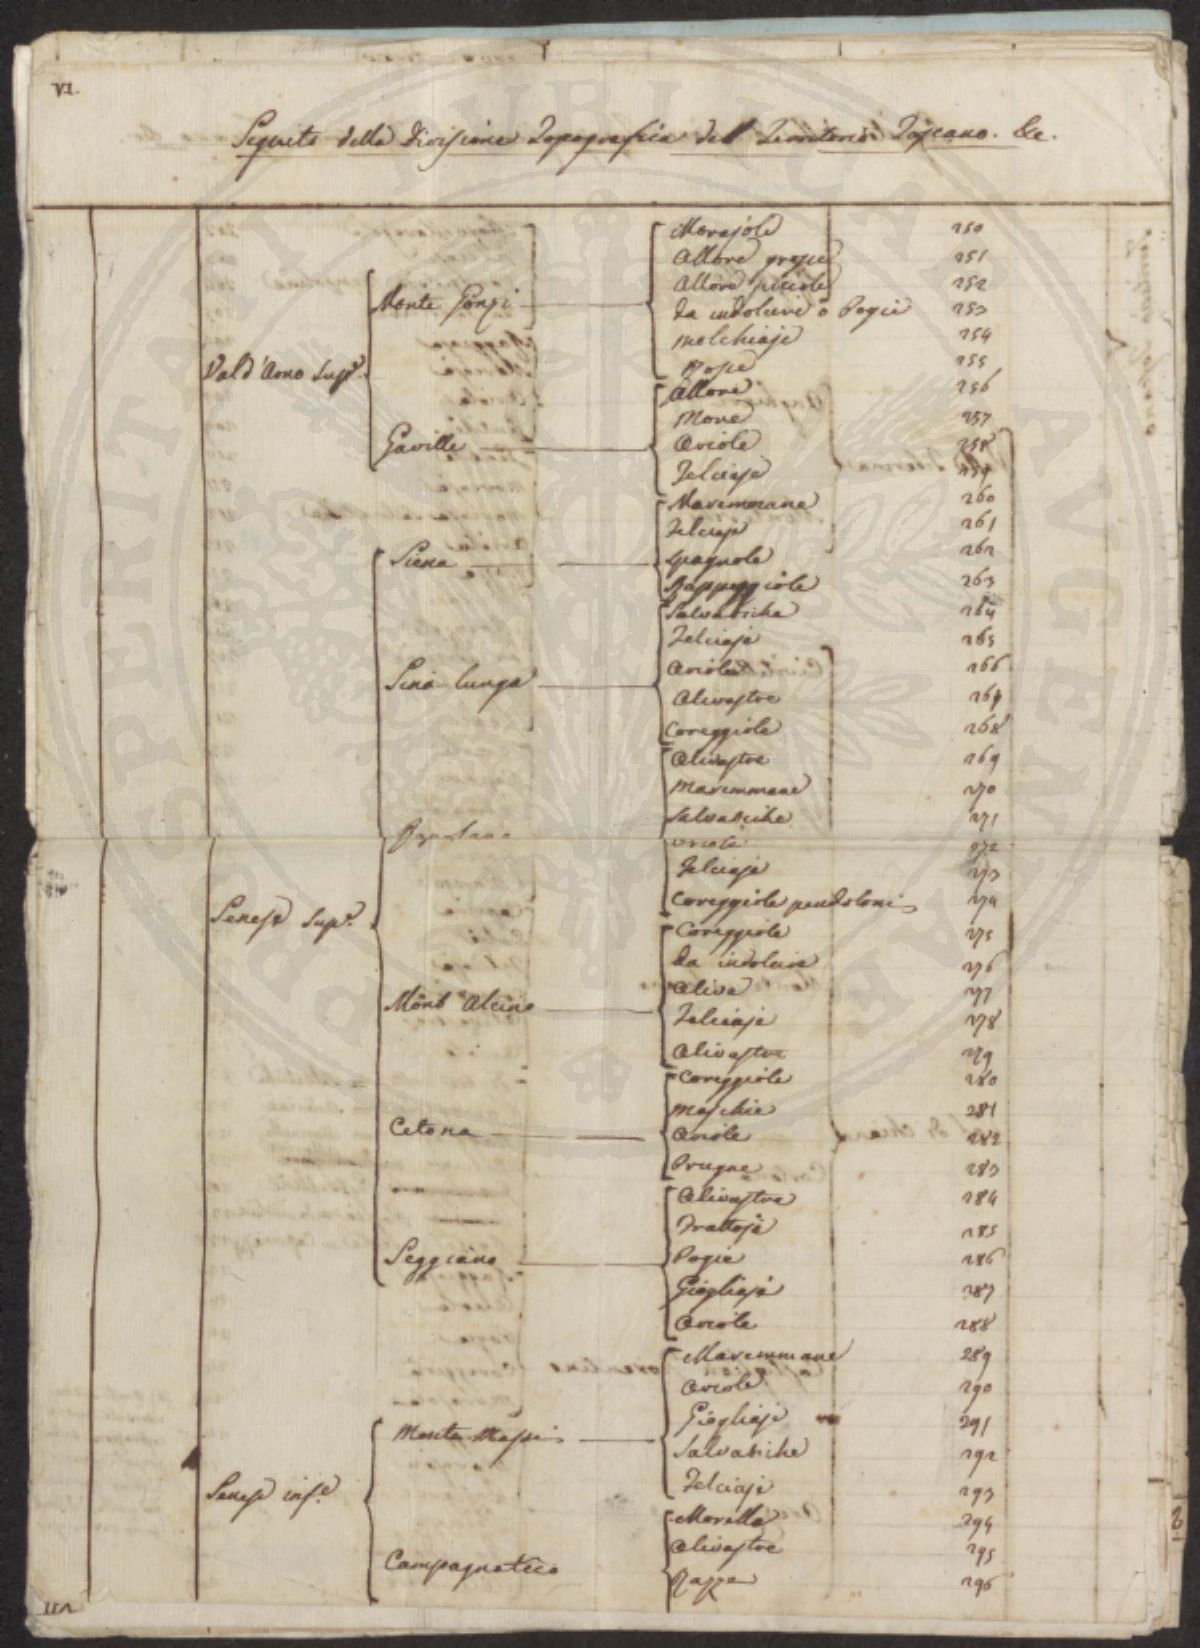 VI.
Seguito della Divisione Topografica del Territorio Toscano. &c.
Morajole 250
Allore grosse 251
Allore piccole 252
Monte Gonzi
da indolcire o Pogie 253
molchiaje 254
Vald'Arno Supe.
Rosse 255
Allore 256
More 257
Gaville
Oriole 258
Felciaje 259
Maremmane 260
Felciaje 261
Siena
Spagnole 262
Rappeggiole 263
Salvatiche 264
Felciaje 265
Sina lunga
Oriole 266
Olivastre 267
Coreggiole 268
Olivastre 269
Maremmane 270
Salvatiche 271
Oriole 272
Felciaje 273
Coreggiole pendoloni 274
Senese Supe.
Coreggiole 275
da indolcire 276
Mont Alcino
Olive 277
Felciaje 278
Olivastre 279
Coreggiole 280
Maschie 281
Cetona
Oriole 282
Prugne 283
Olivastre 284
Frattoje 285
Seggiano
Pogie 286
Giogliaje 287
Oriole 288
Maremmane 289
Oriole 290
Monte Massi
Giogliaje 291
Salvatiche 292
Felciaje 293
Senese infe.
Morelle 294
Olivastre 295
Campagnatico
Razze 296
PROSPERITATI PUBLICAE AUGENDAE